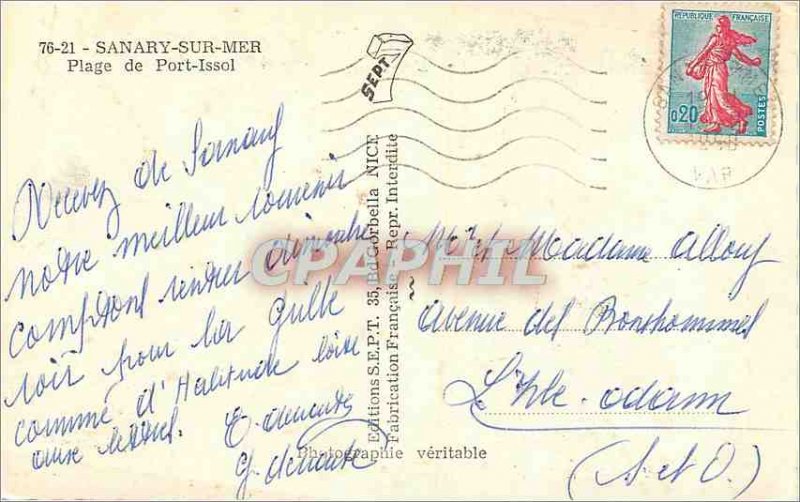 76-21 - SANARY-SUR-MER
Plage de Port-Issol
SEPT
REPUBLIQUE FRANÇAISE
0,20
POSTES
VAR
Recevez de Sanary
notre meilleur souvenir
comptons rentrer dimanche
soir pour la
comme d'Habitude
Editions S.E.P.T. 35, Bd Gorbella NICE
Fabrication Française - Repr. Interdite
CPAPHIL
Mr et Madame Allouy
Avenue des Bonshommes
L'Isle-Adam
(S et O.)
Photographie véritable